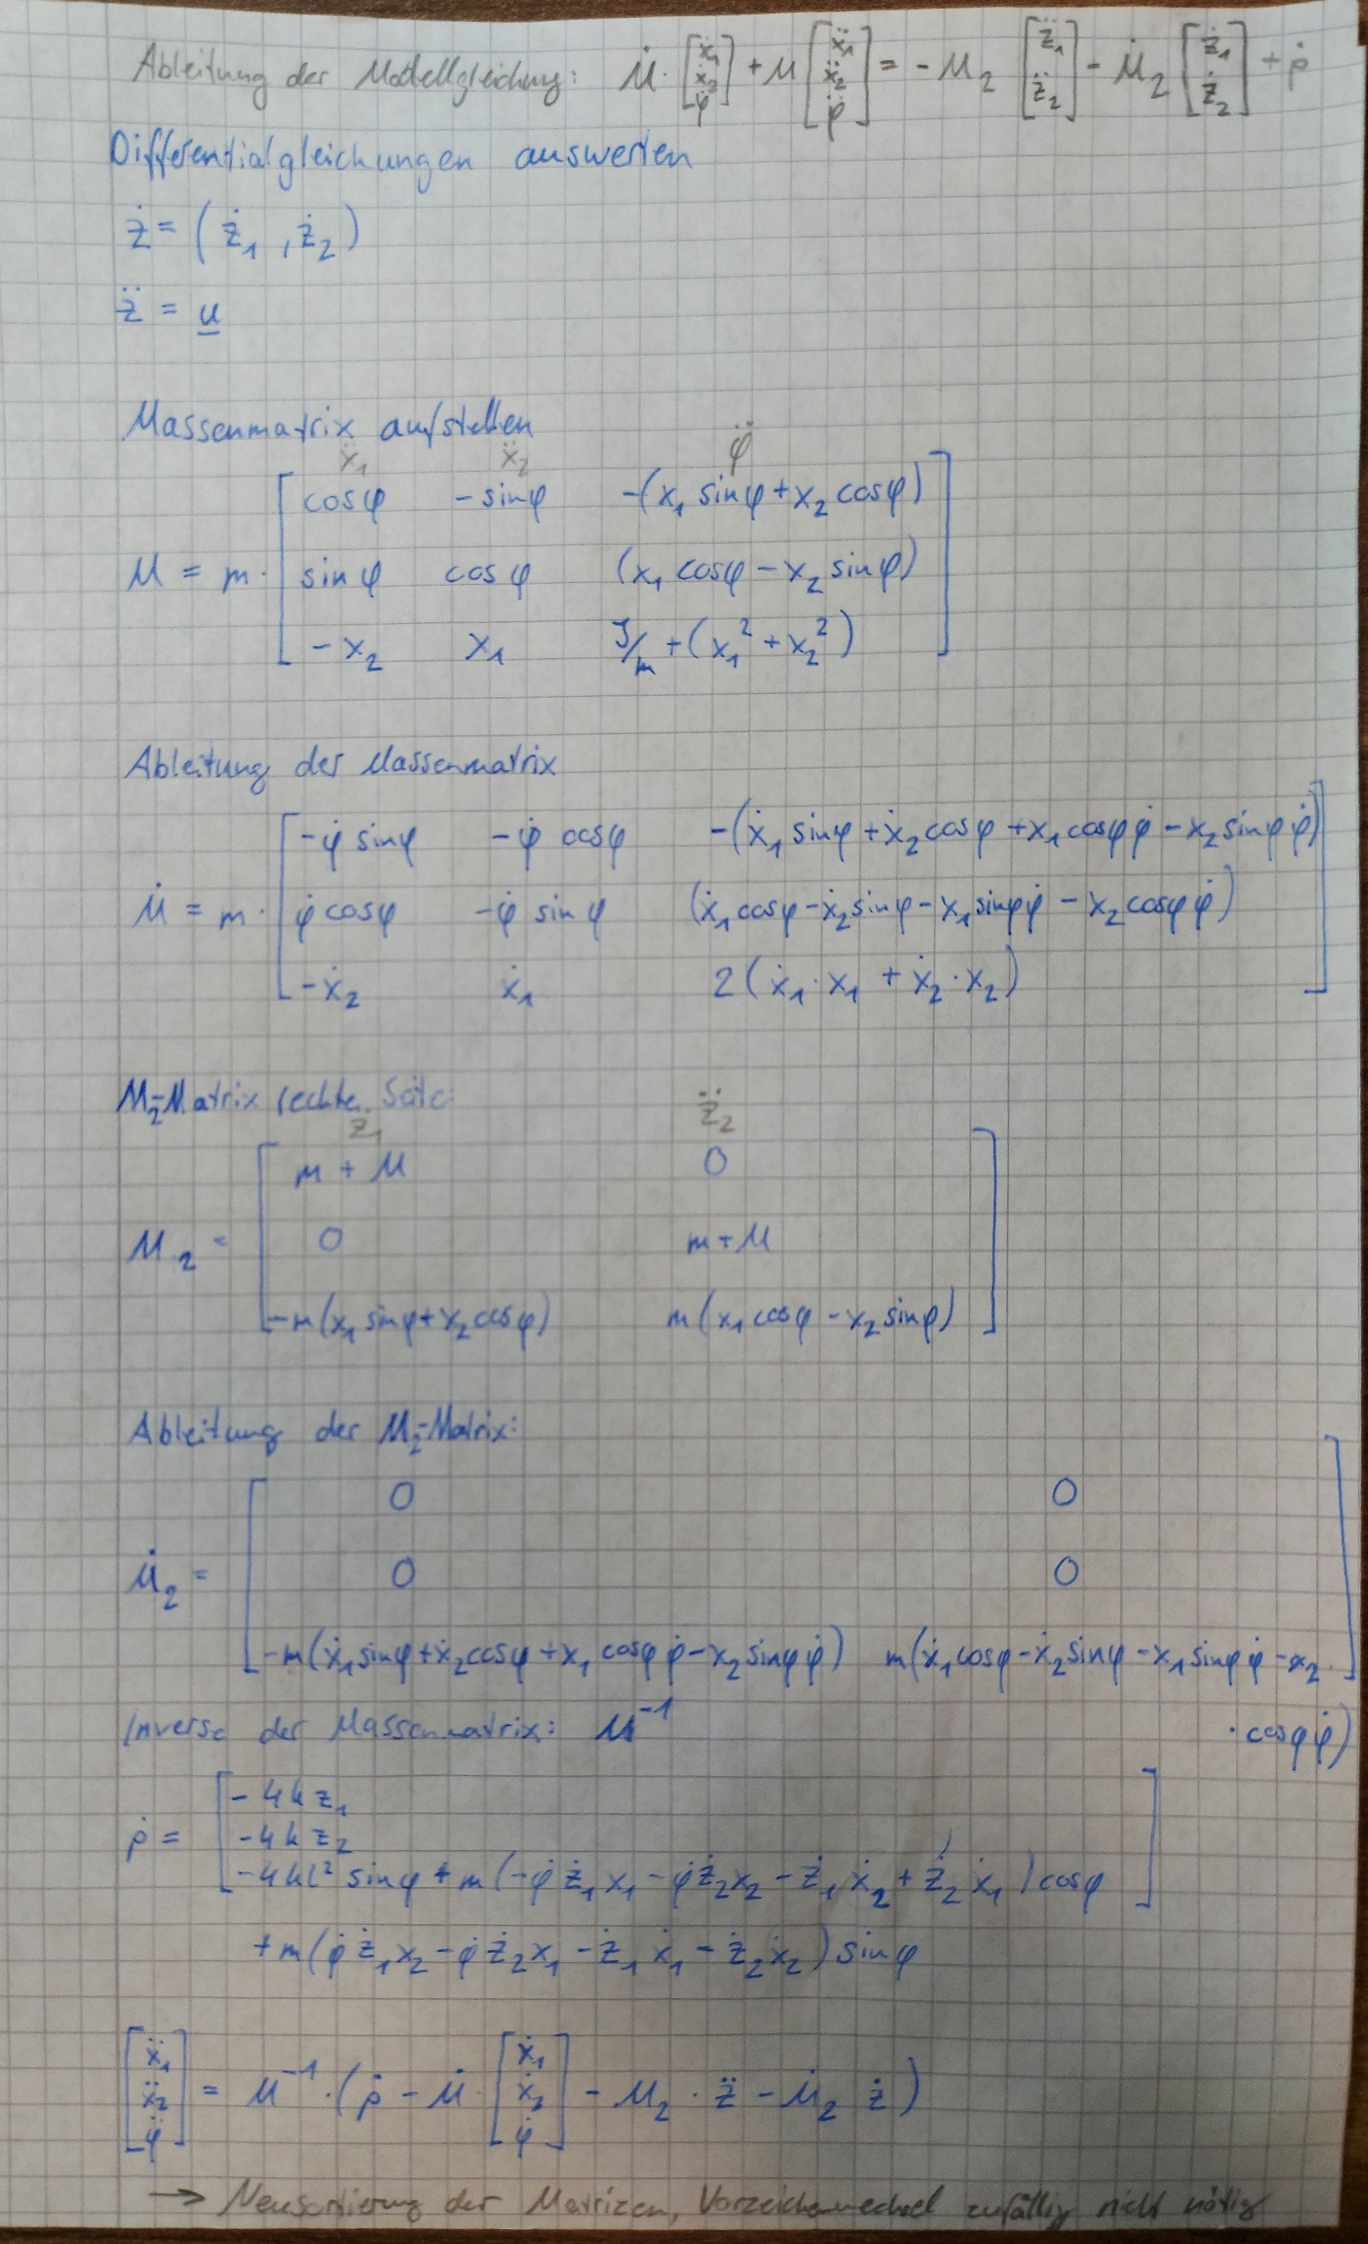 Ableitung der Modellgleichung: Ṁ · [ẋ₁ ẋ₂ φ̇] + M [ẍ₁ ẍ₂ φ̈] = - M₂ [z̈₁ z̈₂] - Ṁ₂ [ż₁ ż₂] + ṗ
Differentialgleichungen auswerten
ż = (ż₁, ż₂)
z̈ = u
Massenmatrix aufstellen
ẍ₁ ẍ₂ φ̈
cosφ -sinφ -(x₁ sinφ + x₂ cosφ)
M = m · sinφ cosφ (x₁ cosφ - x₂ sinφ)
-x₂ x₁ J/m + (x₁² + x₂²)
Ableitung der Massenmatrix
-φ̇ sinφ -φ̇ cosφ -(ẋ₁ sinφ + ẋ₂ cosφ + x₁ cosφ φ̇ - x₂ sinφ φ̇)
Ṁ = m · φ̇ cosφ -φ̇ sinφ (ẋ₁ cosφ - ẋ₂ sinφ - x₁ sinφ φ̇ - x₂ cosφ φ̇)
-ẋ₂ ẋ₁ 2(ẋ₁ · x₁ + ẋ₂ · x₂)
M₂-Matrix rechte Seite:
z̈₁ z̈₂
m + M 0
M₂ = 0 m + M
-m(x₁ sinφ + x₂ cosφ) m(x₁ cosφ - x₂ sinφ)
Ableitung der M₂-Matrix:
0 0
Ṁ₂ = 0 0
-m(ẋ₁ sinφ + ẋ₂ cosφ + x₁ cosφ φ̇ - x₂ sinφ φ̇) m(ẋ₁ cosφ - ẋ₂ sinφ - x₁ sinφ φ̇ - x₂ ·
· cosφ φ̇)
Inverse der Massenmatrix: M⁻¹
- 4k z₁
ṗ = -4k z₂
-4kl² sinφ + m(-φ̇ ż₁ x₁ - φ̇ ż₂ x₂ - ż₁ ẋ₂ + ż₂ ẋ₁) cosφ
+ m(φ̇ ż₁ x₂ - φ̇ ż₂ x₁ - ż₁ ẋ₁ - ż₂ ẋ₂) sinφ
[ẍ₁ ẍ₂ φ̈] = M⁻¹ · (ṗ - Ṁ · [ẋ₁ ẋ₂ φ̇] - M₂ · z̈ - Ṁ₂ ż)
→ Neusortierung der Matrizen, Vorzeichenwechsel zufällig nicht nötig